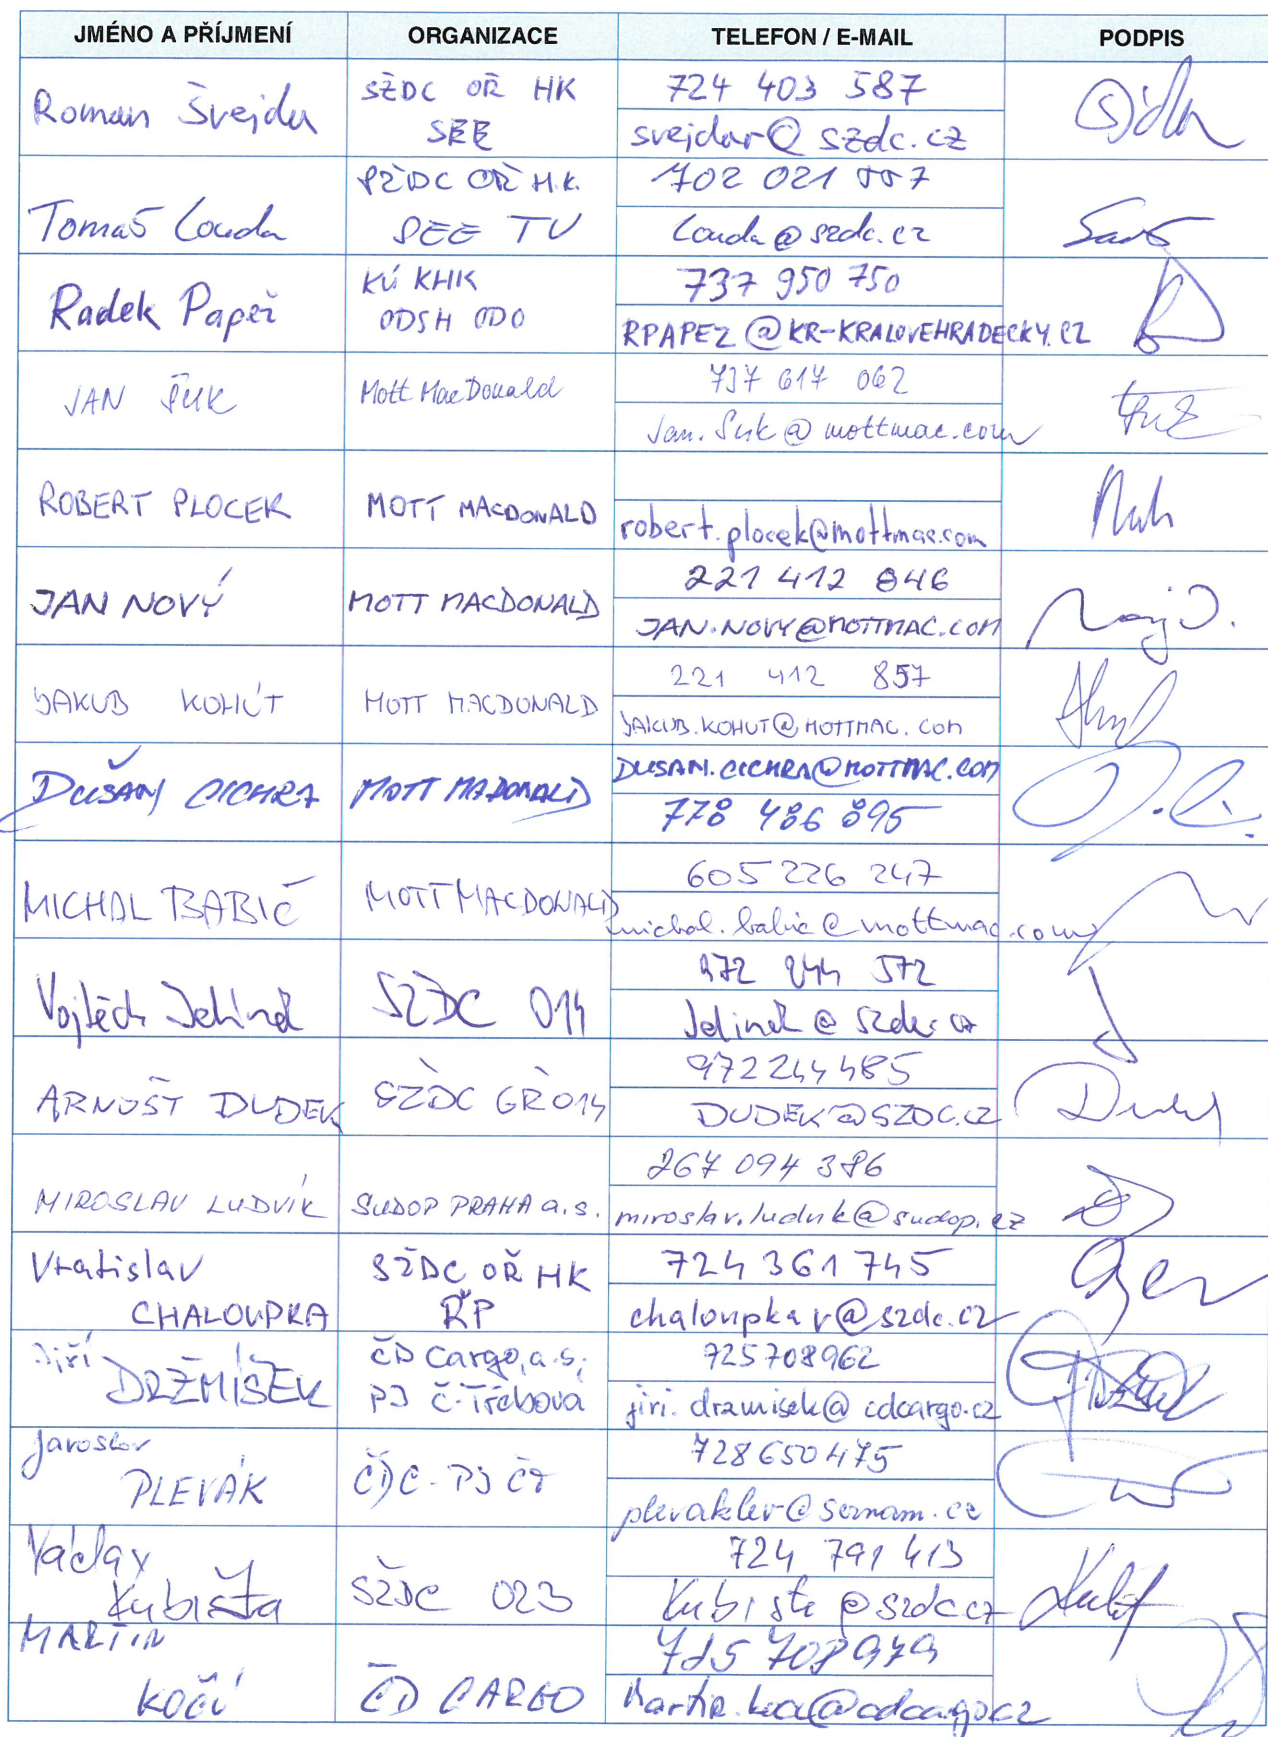 JMÉNO A PŘÍJMENÍ ORGANIZACE TELEFON / E-MAIL PODPIS
Roman Švejda SŽDC OŘ HK 724 403 587
SEE svejdar@szdc.cz
Tomáš Louda SŽDC OŘ H.K. 702 021 557
SEE TV Louda@szdc.cz
Radek Papež KÚ KHK 737 950 750
ODSH ODO RPAPEZ@KR-KRALOVEHRADECKY.CZ
JAN ŠUK Mott MacDonald 737 617 062
Jan.Suk@mottmac.com
ROBERT PLOCEK MOTT MACDONALD
robert.plocek@mottmac.com
JAN NOVÝ MOTT MACDONALD 221 412 846
JAN.NOVY@MOTTMAC.COM
JAKUB KOHÚT MOTT MACDONALD 221 412 857
JAKUB.KOHUT@MOTTMAC.COM
DUŠAN CICHRA MOTT MADONALD DUSAN.CICHRA@MOTTMAC.COM
778 486 895
MICHAL BABIČ MOTT MACDONALD 605 226 247
michal.babic@mottmac.com
Vojtěch Jelínek SŽDC O14 972 244 572
Jelinek@szdc.cz
ARNOŠT DUDEK SŽDC GŘ O14 972244485
DUDEK@SZDC.CZ
MIROSLAV LUDVÍK SUDOP PRAHA a.s. 267 094 386
miroslav.ludvik@sudop.cz
Vratislav SŽDC OŘ HK 724 361 745
CHALOUPKA ŘP chaloupkav@szdc.cz
Jiří ČD Cargo, a.s., 725708962
DRŽMÍŠEK PJ Č.Třebová jiri.drzmisek@cdcargo.cz
Jaroslav 728650475
PLEVÁK ČDC - PJ ČT plevakler@seznam.cz
Václav 724 791 413
Kubišta SŽDC O23 Kubista@szdc.cz
MARTIN 725 708979
KOČÍ ČD CARGO Martin.koci@cdcargo.cz